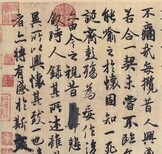 不痛哉每攬昔人興
若合一契未嘗不臨文
能喻之於懷固知一死
誕齊彭殤為妄作後
今之視昔
敘時人錄其所述雖
異所以興懷其致一也
者亦將有感於斯